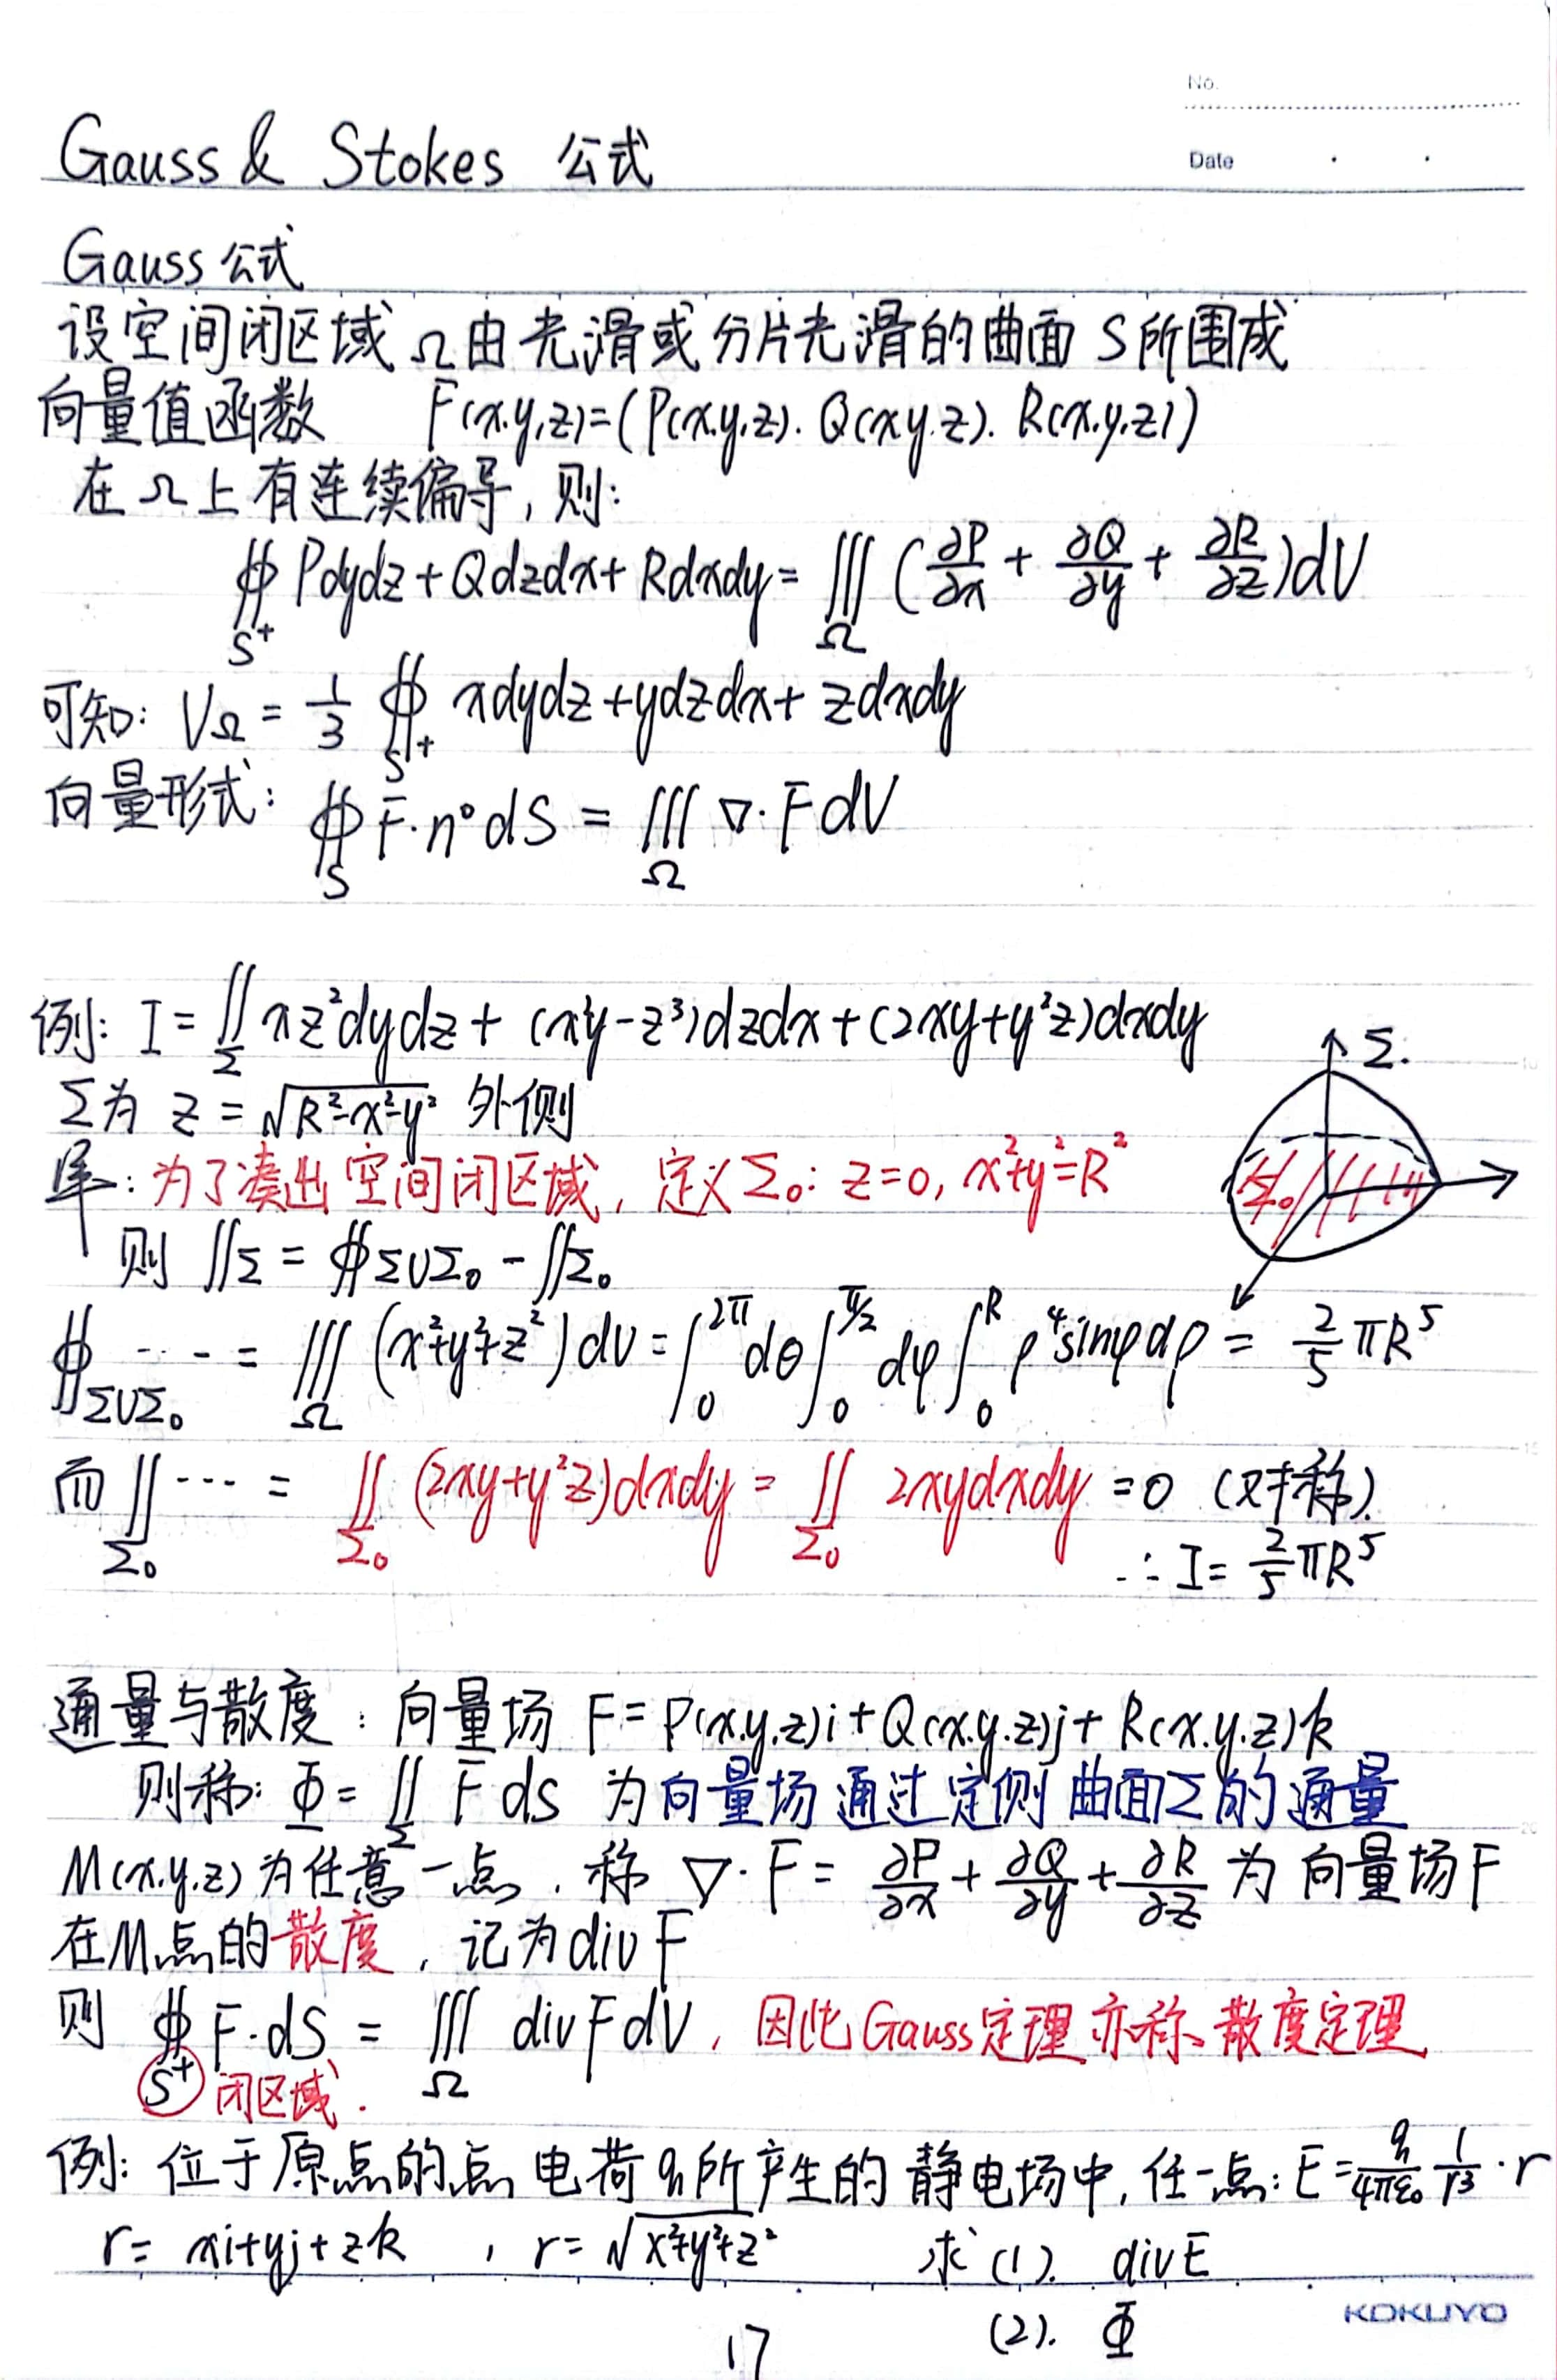 No.
Date
Gauss & Stokes 公式
Gauss公式
设空间闭区域 Ω 由光滑或分片光滑的曲面 S 所围成
向量值函数 F(x,y,z)=(P(x,y,z). Q(x,y,z). R(x,y,z))
在 Ω 上有连续偏导, 则:
∯_{S⁺} Pdydz+Qdzdx+Rdxdy = ∭_Ω (∂P/∂x + ∂Q/∂y + ∂R/∂z)dV
可知: V_Ω = 1/3 ∯_{S⁺} xdydz+ydzdx+zdxdy
向量形式: ∯_S F·n°dS = ∭_Ω ∇·FdV
例: I=∬_Σ xz²dydz+(x²y-z³)dzdx+(2xy+y²z)dxdy
Σ.
Σ为 z=√(R²-x²-y²) 外侧
解: 为了凑出空间闭区域, 定义Σ₀: z=0, x²+y²=R²
Σ₀
则 ∬Σ = ∯Σ∪Σ₀ - ∬Σ₀
∯_{Σ∪Σ₀} ··· = ∭_Ω (x²+y²+z²)dV = ∫₀^{2π}dθ∫₀^{π/2}dφ∫₀^R ρ⁴sinφdρ = 2/5 πR⁵
而∬_{Σ₀} ··· = ∬_{Σ₀} (2xy+y²z)dxdy = ∬_{Σ₀} 2xydxdy =0 (对称).
∴ I= 2/5 πR⁵
通量与散度: 向量场 F=P(x.y,z)i+Q(x.y.z)j+R(x.y.z)k
则称: Φ=∬_Σ F ds 为向量场通过定侧曲面Σ的通量
M(x.y.z)为任意一点, 称 ∇·F = ∂P/∂x + ∂Q/∂y + ∂R/∂z 为向量场F
在M点的散度, 记为divF
则 ∯_{S⁺} F·dS = ∭_Ω divFdV, 因此Gauss定理亦称散度定理
闭区域.
例: 位于原点的点电荷q所产生的静电场中, 任一点: E= q/4πε₀ 1/r³ ·r
r= xi+yj+zk , r=√(x²+y²+z²) 求 (1). divE
(2). Φ
KOKUYO
17